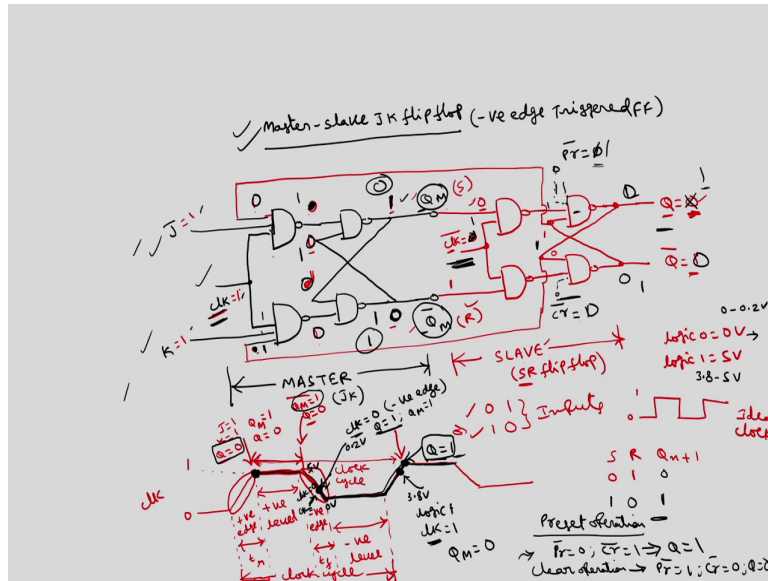 Master-slave JK flip flop (-ve edge Triggered FF)
P̅r̅ = 0̸ 1
J=1
clk=1
K=1
Q_M (S)
Q̅_M (R)
Q =
Q̅ = 0
C̅r̅ = 0
MASTER
(JK)
SLAVE
(SR flip flop)
0-0.2V
logic 0 = 0V →
logic 1 = 5V
3.8-5V
0 1 } Inputs
1 0
Ideal
clock
J=1
K=1
Q_M=1
Q=0
Q=0
Q_M=1
Q=0
clk=0 (-ve edge)
Q=1; Q_M=1
0.2V
Q=1
clk
1
0
5V
0V
clock
cycle
+ve
edge
+ve
level
-ve
edge
-ve
level
clock cycle
3.8V
logic 1
clk=1
Q_M=0
S R Q_n+1
0 1 0
1 0 1
Preset operation
→ P̅r̅=0; C̅r̅=1 ⇒ Q=1
Clear operation → P̅r̅=1; C̅r̅=0; Q=0